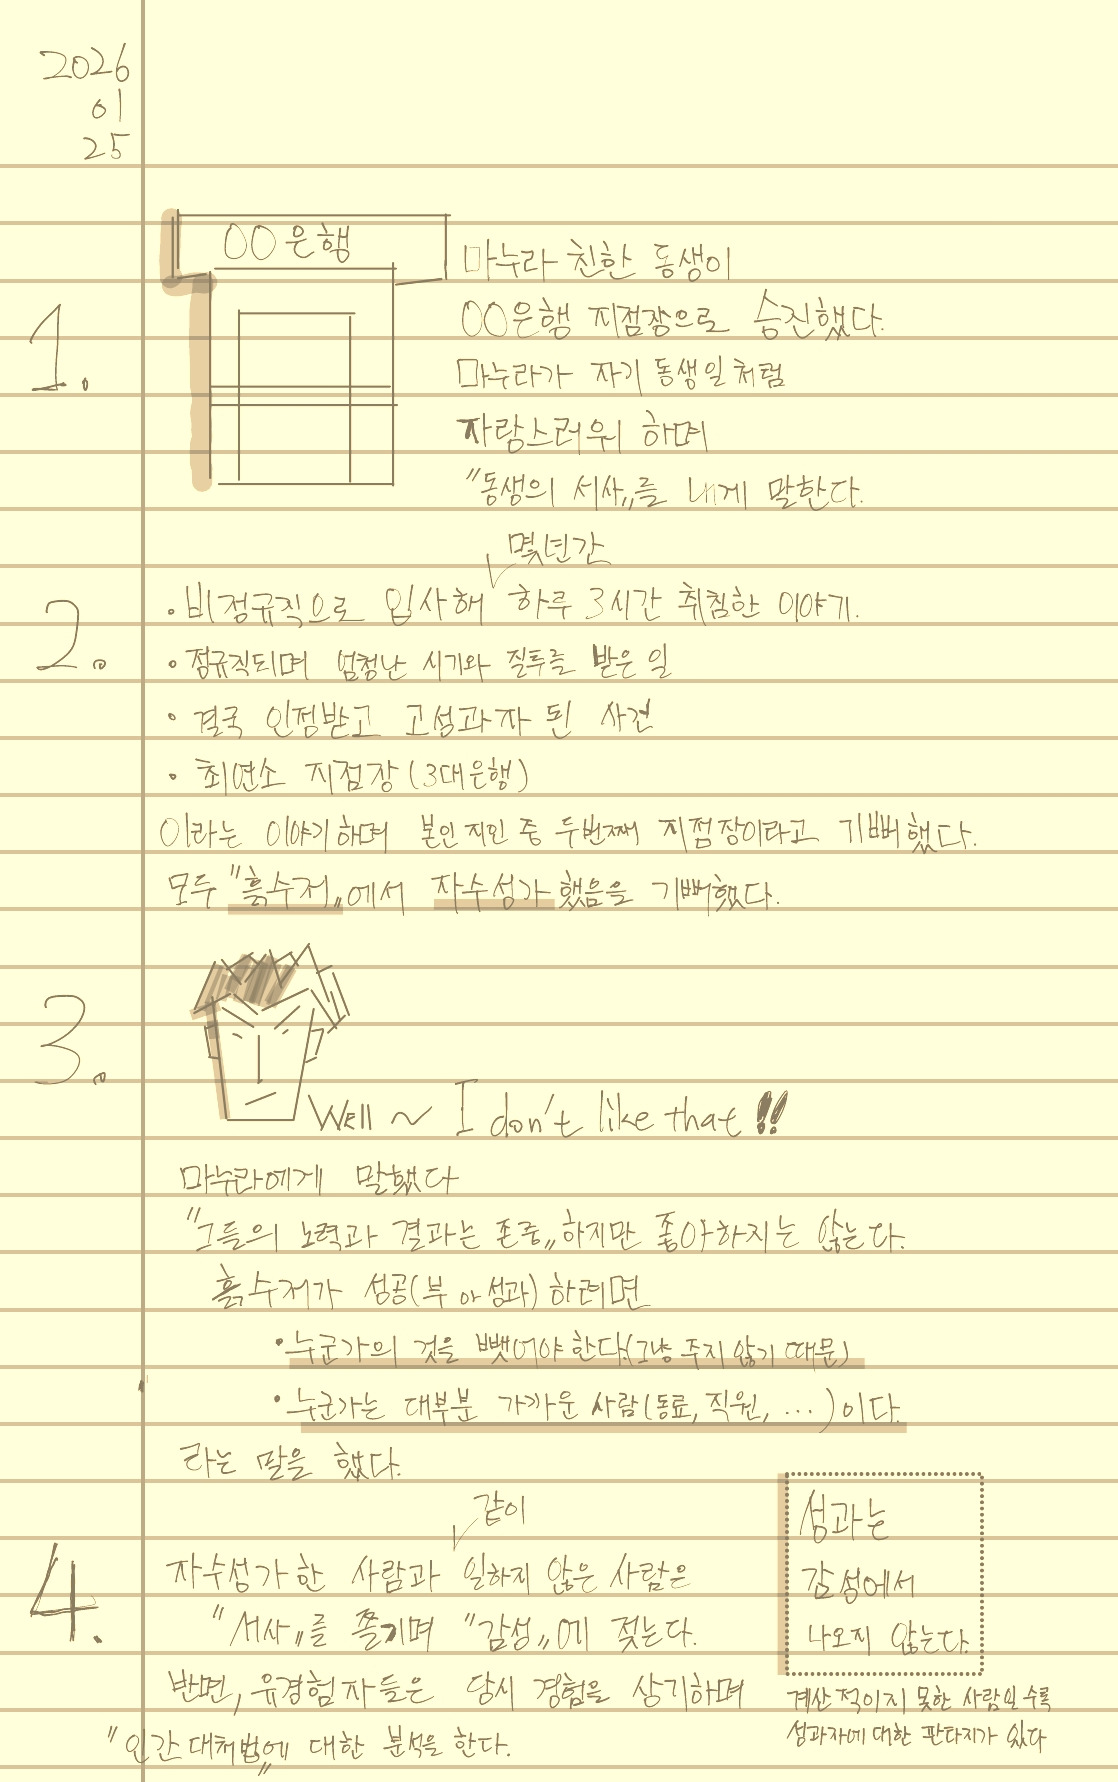 2026
01
25
1.
OO은행
마누라 친한 동생이
OO은행 지점장으로 승진했다.
마누라가 자기 동생일처럼
자랑스러워 하며
"동생의 서사"를 내게 말한다.
몇년간
2.
· 비정규직으로 입사해 하루 3시간 취침한 이야기.
· 정규직되며 엄청난 시기와 질투를 받은 일
· 결국 인정받고 고성과자 된 사건
· 최연소 지점장(3대은행)
이라는 이야기하며 본인 지인 중 두번째 지점장이라고 기뻐했다.
모두 "흙수저"에서 자수성가 했음을 기뻐했다.
3.
Well ~ I don't like that !!
마누라에게 말했다
"그들의 노력과 결과는 존중"하지만 좋아하지는 않는다.
흙수저가 성공(부 or 성과)하려면
· 누군가의 것을 뺏어야 한다(그냥 주지 않기 때문)
· 누군가는 대부분 가까운 사람(동료, 직원, ...)이다.
라는 말을 했다.
4.
같이
자수성가한 사람과 일하지 않은 사람은
"서사"를 즐기며 "감성"에 젖는다.
반면, 유경험자들은 당시 경험을 상기하며
"인간 대처법"에 대한 분석을 한다.
성과는
감성에서
나오지 않는다.
계산적이지 못한 사람일수록
성과자에 대한 판타지가 있다